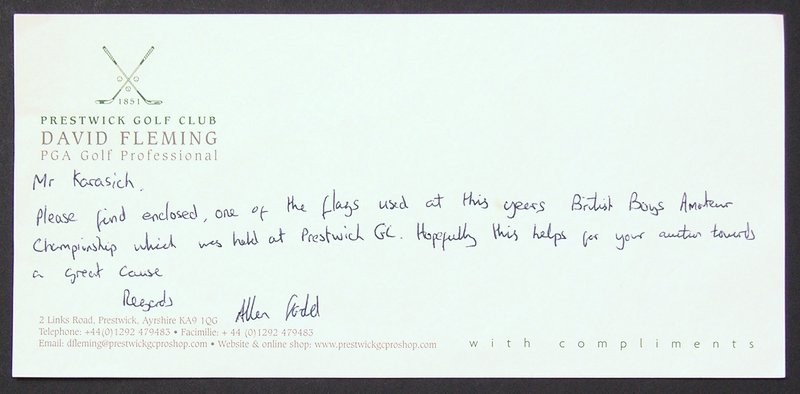 1851
PRESTWICK GOLF CLUB
DAVID FLEMING
PGA Golf Professional
Mr Karasich.
Please find enclosed, one of the flags used at this years British Boys Amateur
Championship which was held at Prestwick GC. Hopefully this helps for your auction towards
a great cause
Regards
Allan
2 Links Road, Prestwick, Ayrshire KA9 1QG
Telephone: +44(0)1292 479483 • Facimilie: + 44 (0)1292 479483
Email: dfleming@prestwickgcproshop.com • Website & online shop: www.prestwickgcproshop.com
with compliments